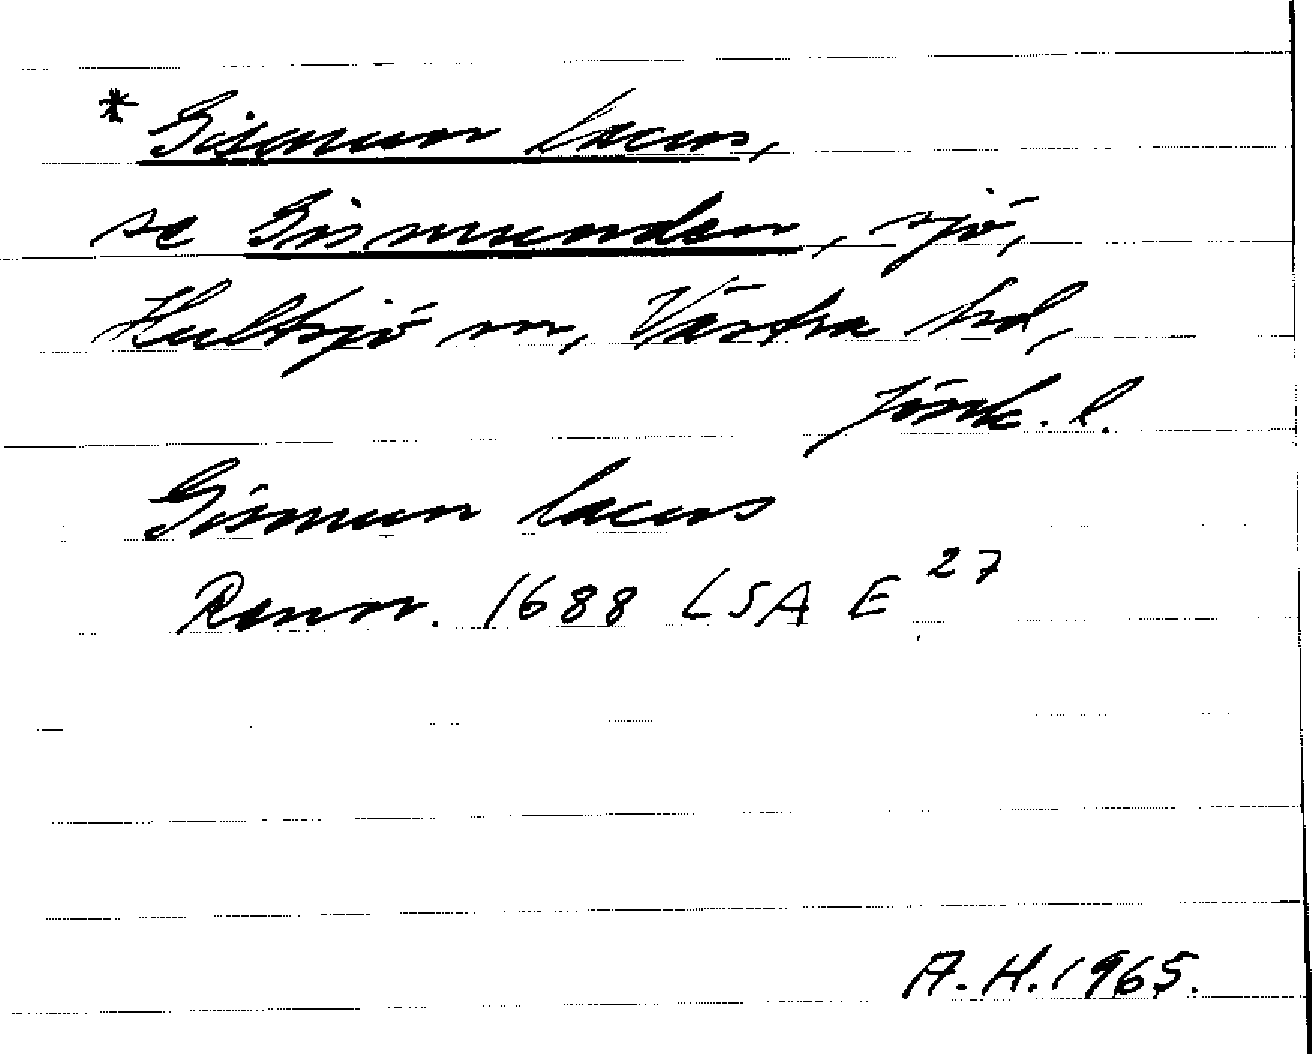 * Gismun lacus,
se Gismunden, sjö,
Hultsjö sn, Västra hd,
Jönk. l.
Gismun lacus
Rann. 1688 LSA E 27
A. H. 1965.